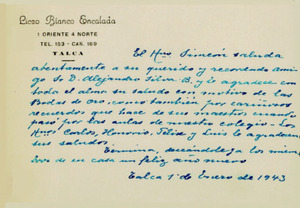 Liceo Blanco Encalada
1 ORIENTE 4 NORTE
TEL. 103 - CAS. 169
TALCA
El Hno. Simeón saluda
atentamente a su querido y recordado Ami
go Sr. D. Alejandro Silva B. y le agradece con
toda el alma su saludo con motivo de las
Bodas de oro, como también por cariñosos
recuerdos que hace de sus maestros cuando
pasó por las aulas de nuestro colegio. Los
Hnos. Carlos, Honorio, Félix y Luis le agradecen
sus saludos.
Termina, deseándoles a los miem
bros de su casa un feliz año nuevo
Talca 1º de Enero de 1943